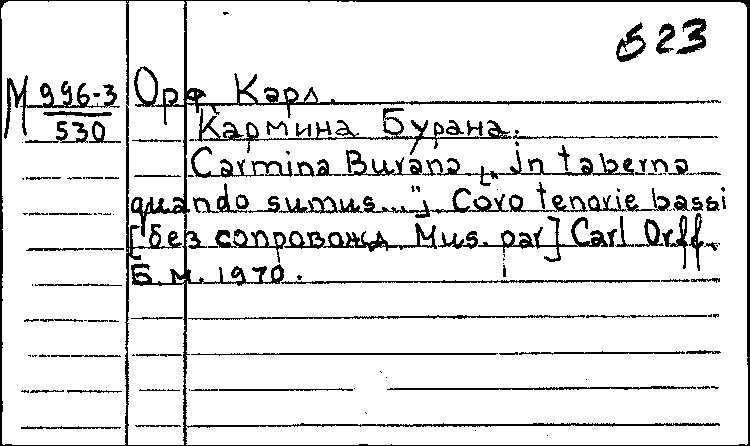 523
М 996-3
530
Орф, Карл.
Кармина Бурана.
Carmina Burana „In taberna
quando sumus..."; Coro tenorie bassi
[без сопровожд. Mus. par] Carl Orff.
Б.м. 1970.